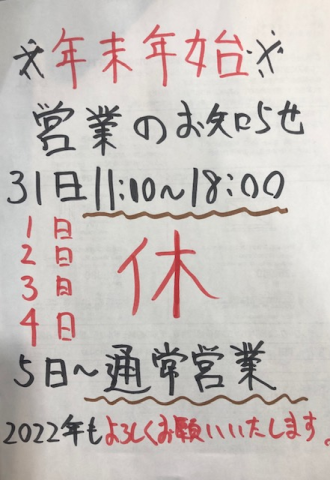 ※年末年始※
営業のお知らせ
31日 11:10〜18:00
1日
2日
3日
4日
休
5日〜通常営業
2022年もよろしくお願いいたします。